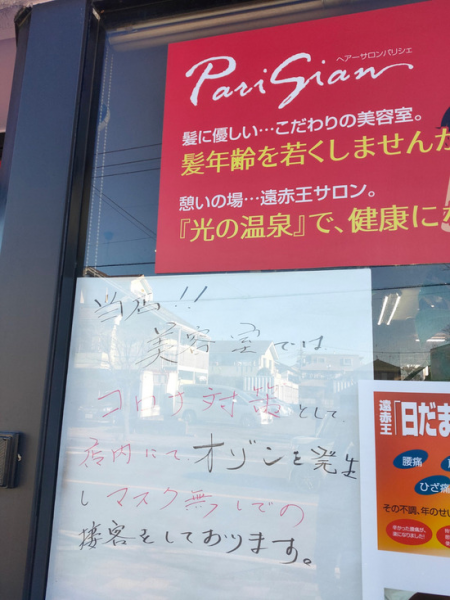 PariGian
ヘアーサロンパリシェ
髪に優しい…こだわりの美容室。
髪年齢を若くしませんか
憩いの場…遠赤王サロン。
『光の温泉』で、健康に
当店!!
美容室では
コロナ対策として
店内にてオゾンを発生
しマスク無しでの
接客をしております。
遠赤王
「日だま
腰痛
ひざ痛
その不調、年のせい